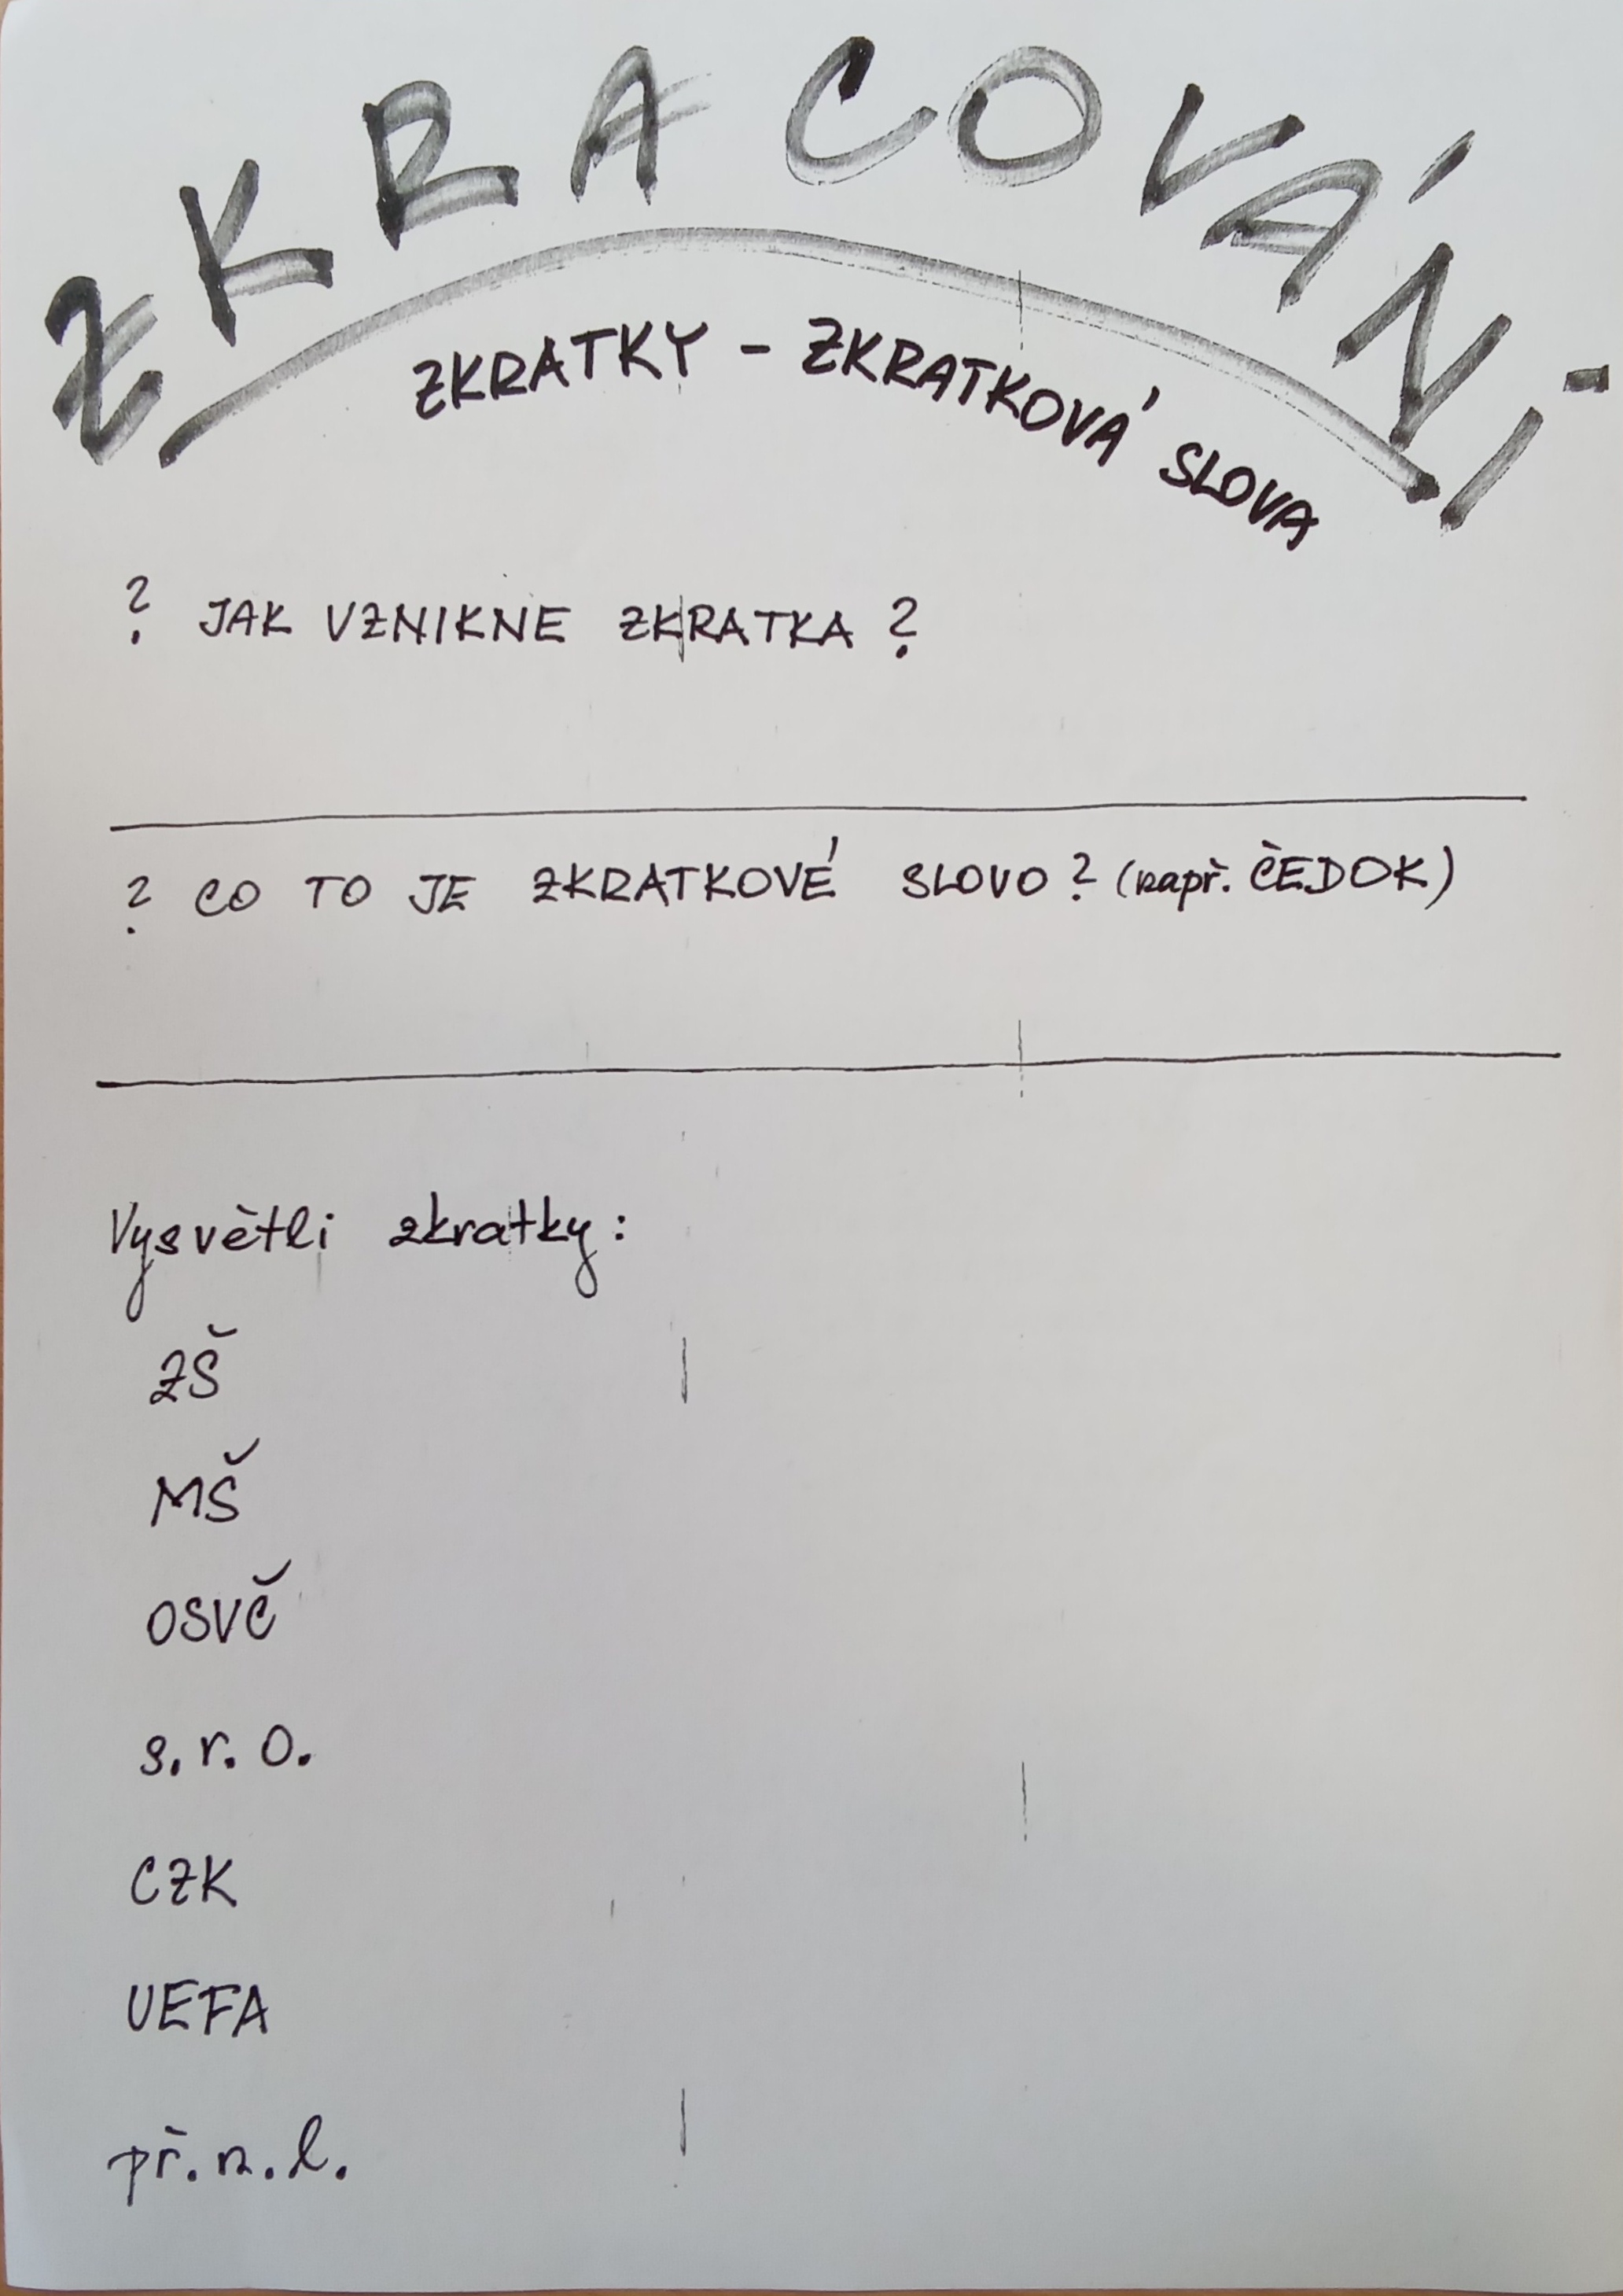 ZKRACOVÁNÍ
ZKRATKY - ZKRATKOVÁ SLOVA
? JAK VZNIKNE ZKRATKA ?
? CO TO JE ZKRATKOVÉ SLOVO? (např. ČEDOK)
Vysvětli zkratky:
ZŠ
MŠ
OSVČ
s.r.o.
CZK
UEFA
př.n.l.